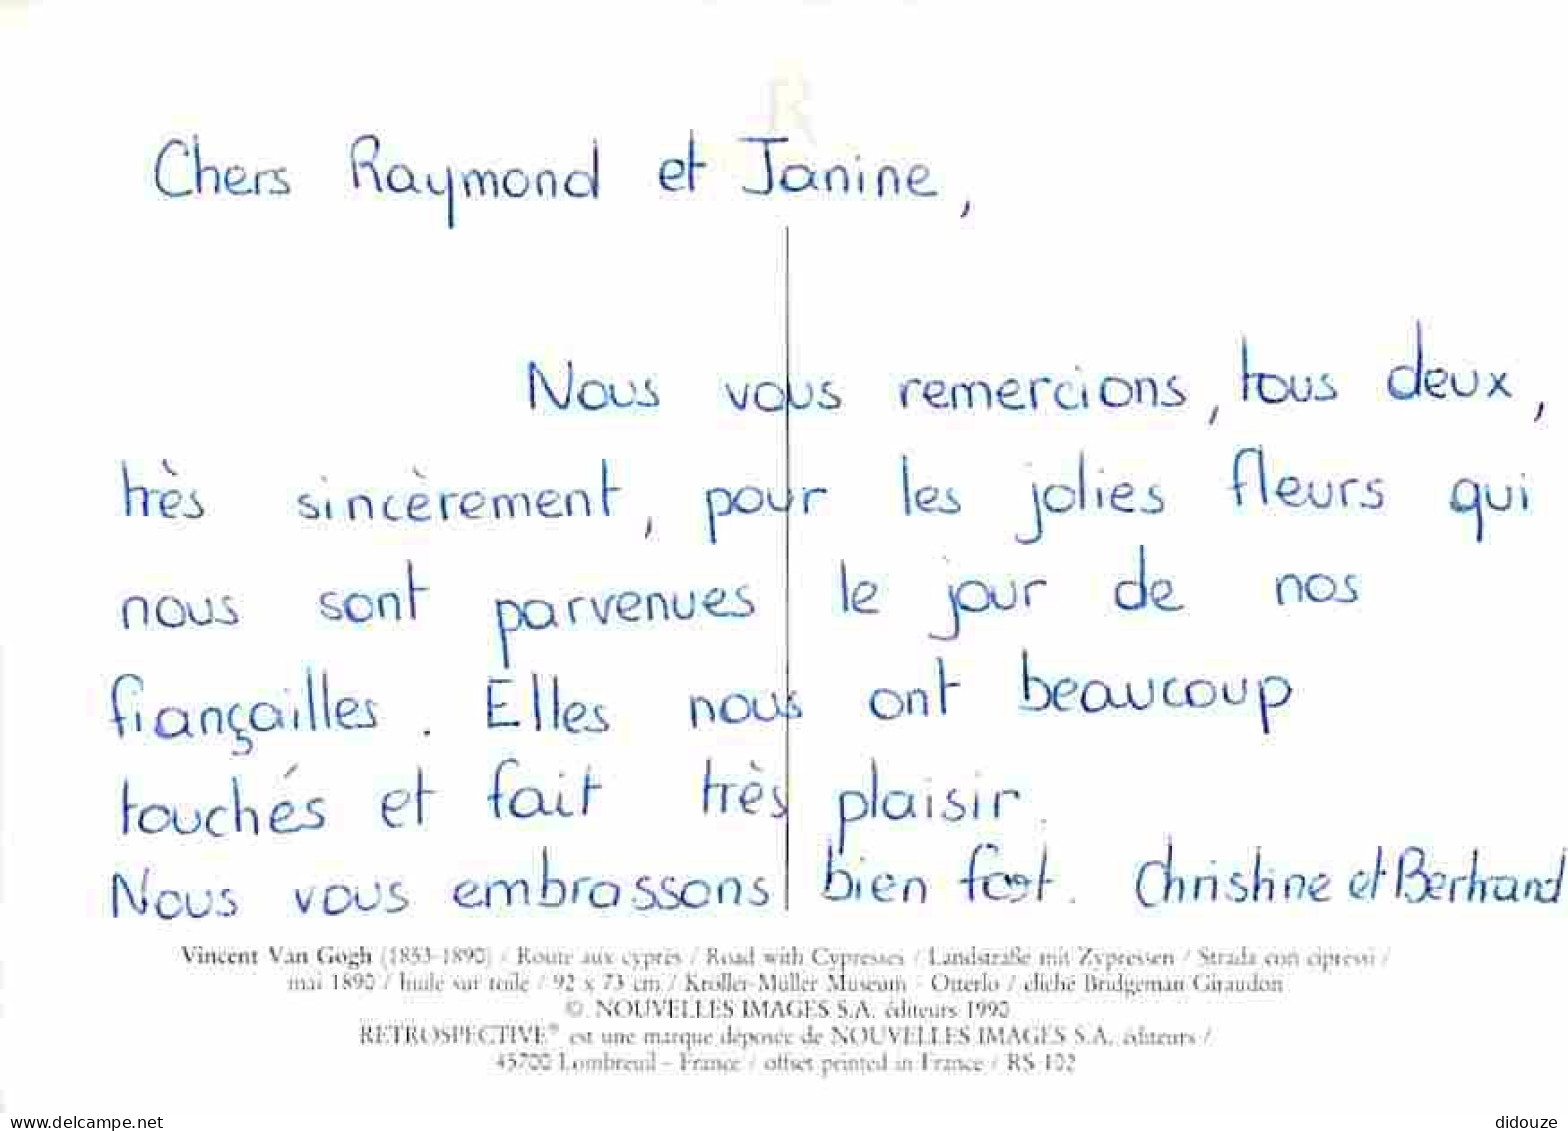 Chers Raymond et Janine,
Nous vous remercions, tous deux,
très sincèrement, pour les jolies fleurs qui
nous sont parvenues le jour de nos
fiançailles. Elles nous ont beaucoup
touchés et fait très plaisir.
Nous vous embrassons bien fort. Christine et Bertrand
Vincent Van Gogh (1853-1890) / Route aux cyprès / Road with Cypresses / Landstraße mit Zypressen / Strada con cipressi /
mai 1890 / huile sur toile / 92 x 73 cm / Kröller-Müller Museum - Otterlo / cliché Bridgeman Giraudon
© NOUVELLES IMAGES S.A. éditeurs 1990
RETROSPECTIVE® est une marque déposée de NOUVELLES IMAGES S.A. éditeurs /
45700 Lombreuil - France / offset printed in France / RS 102
www.delcampe.net
didouze